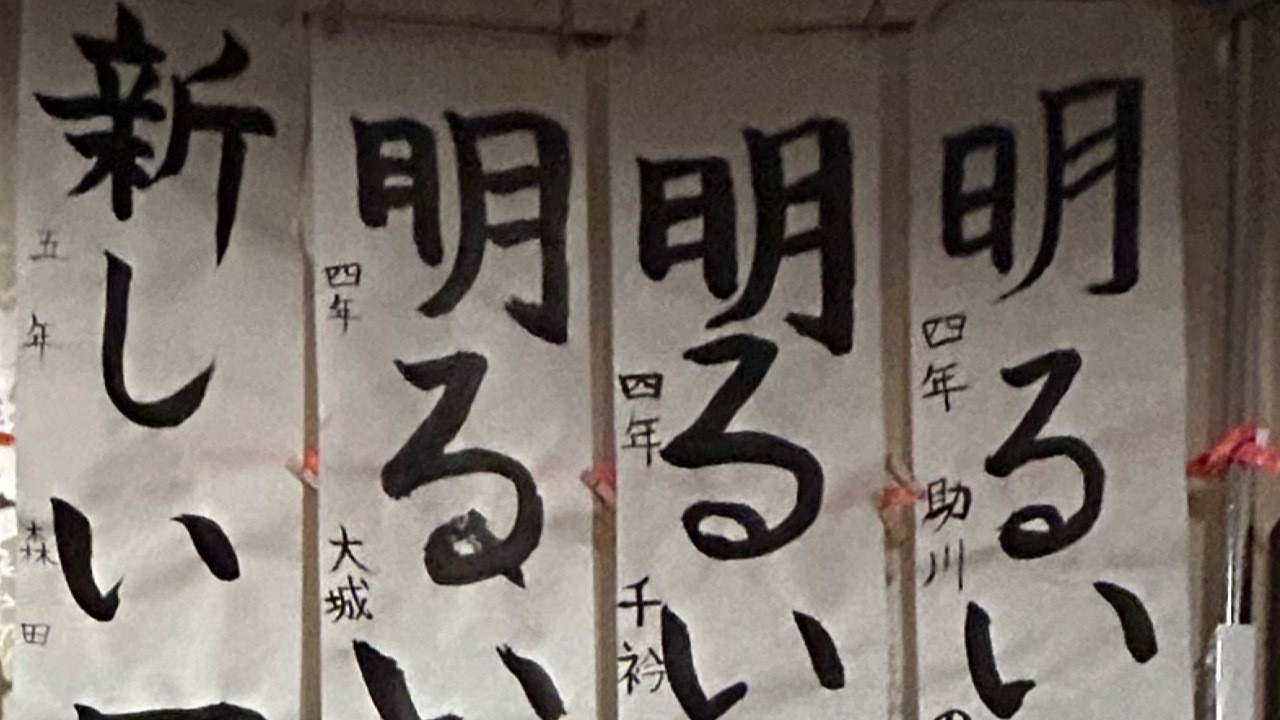 明るい
四年 助川
明るい
四年 千衿
明るい
四年 大城
新しい
五年 森田